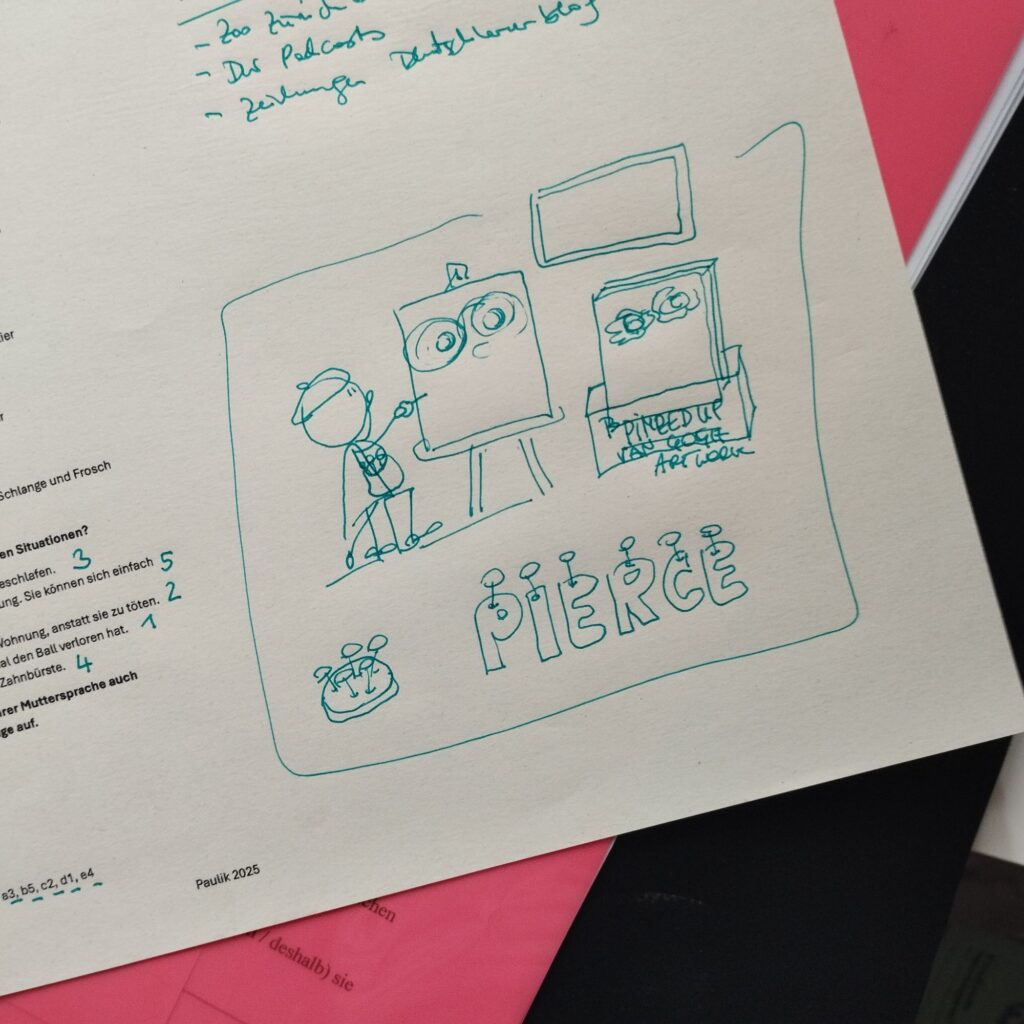 - Zoo Zürich
- Der Podcasts
- Zeitungen Deutschlernerblog
ier
r
Schlange und Frosch
en Situationen?
eschlafen. 3
ung. Sie können sich einfach 5
Wohnung, anstatt sie zu töten. 2
al den Ball verloren hat. 1
Zahnbürste. 4
hrer Muttersprache auch
ge auf.
PIMPED UP
VAN GOGH
ARTWORK
PIERCE
a3, b5, c2, d1, e4
Paulik 2025
chen
/ deshalb) sie